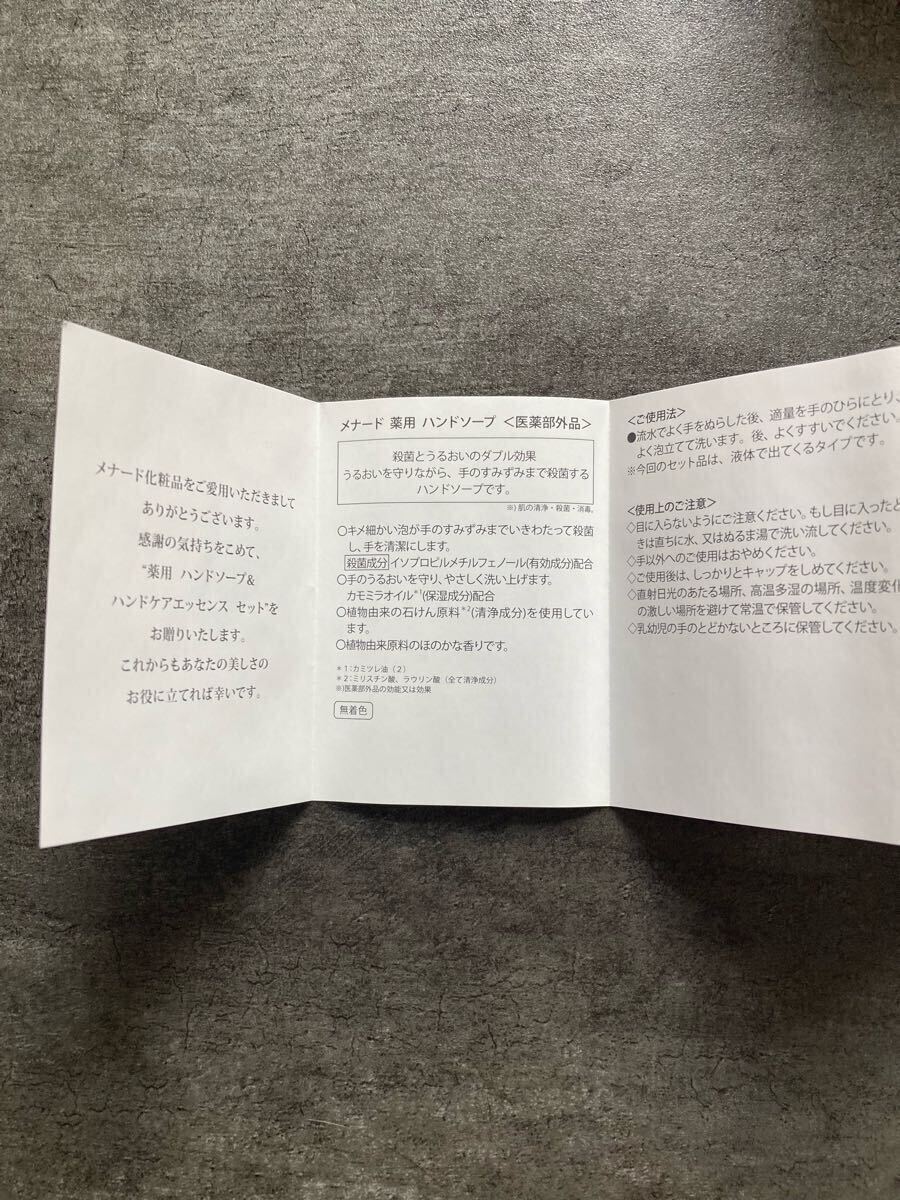 メナード化粧品をご愛用いただきまして
ありがとうございます。
感謝の気持ちをこめて、
“薬用 ハンドソープ&
ハンドケアエッセンス セット”を
お贈りいたします。
これからもあなたの美しさの
お役に立てれば幸いです。
メナード 薬用 ハンドソープ <医薬部外品>
殺菌とうるおいのダブル効果
うるおいを守りながら、手のすみずみまで殺菌する
ハンドソープです。
※)肌の清浄・殺菌・消毒。
○キメ細かい泡が手のすみずみまでいきわたって殺菌
し、手を清潔にします。
殺菌成分 イソプロピルメチルフェノール(有効成分)配合
○手のうるおいを守り、やさしく洗い上げます。
カモミラオイル*1(保湿成分)配合
○植物由来の石けん原料*2(清浄成分)を使用してい
ます。
○植物由来原料のほのかな香りです。
*1:カミツレ油(2)
*2:ミリスチン酸、ラウリン酸(全て清浄成分)
※)医薬部外品の効能又は効果
無着色
<ご使用法>
●流水でよく手をぬらした後、適量を手のひらにとり、
よく泡立てて洗います。後、よくすすいでください。
※今回のセット品は、液体で出てくるタイプです。
<使用上のご注意>
◇目に入らないようにご注意ください。もし目に入ったと
きは直ちに水、又はぬるま湯で洗い流してください。
◇手以外へのご使用はおやめください。
◇ご使用後は、しっかりとキャップをしめてください。
◇直射日光のあたる場所、高温多湿の場所、温度変化
の激しい場所を避けて常温で保管してください。
◇乳幼児の手のとどかないところに保管してください。